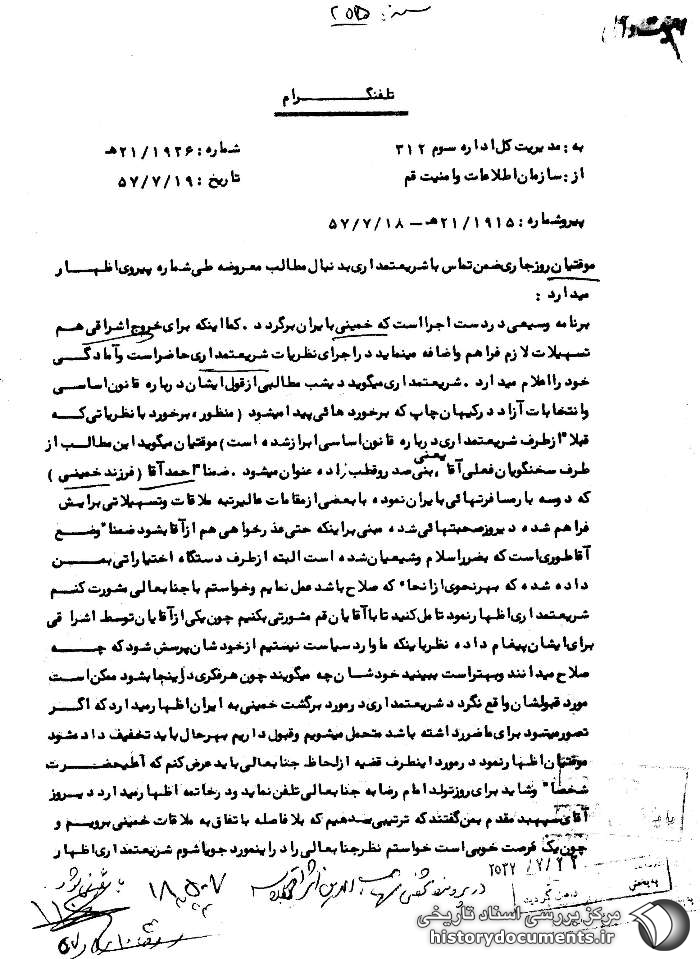 سند: ۲۵۵
تلفنگرام
به: مدیریت کل اداره سوم ۳۱۲
شماره: ۲۱/۱۹۲۶هـ
از: سازمان اطلاعات و امنیت قم
تاریخ: ۵۷/۷/۱۹
پیرو شماره: ۲۱/۱۹۱۵هـ – ۵۷/۷/۱۸
موقتیان روز جاری ضمن تماس با شریعتمداری بدنبال مطالب معروضه طی شماره پیروی اظهار
میدارد:
برنامه وسیعی در دست اجرا است که خمینی بایران برگردد. کما اینکه برای خروج اشراقی هم
تسهیلات لازم فراهم و اضافه مینماید در اجرای نظریات شریعتمداری حاضر است و آمادگی
خود را اعلام میدارد. شریعتمداری میگوید دیشب مطالبی از قول ایشان درباره قانون اساسی
و انتخابات آزاد در کیهان چاپ که برخوردهائی پیدا میشود (منظور، برخورد با نظریاتی که
قبلا" از طرف شریعتمداری درباره قانون اساسی ابراز شده است) موقتیان میگوید این مطالب از
طرف سخنگویان فعلی آقا یعنی، بنی صدر و قطب زاده عنوان میشود. ضمنا" احمد آقا (فرزند خمینی)
که دو سه بار مسافرتهائی بایران نموده با بعضی از مقامات عالیرتبه ملاقات و تسهیلاتی برایش
فراهم شده دیروز صحبتهائی شده مبنی بر اینکه حتی عذرخواهی هم از آقا بشود ضمنا" وضع
آقا طوری است که بضرر اسلام و شیعیان شده است البته از طرف دستگاه اختیاراتی بمن
داده شده که بهر نحوی از انحا" که صلاح باشد عمل نمایم و خواستم با جنابعالی مشورت کنم
شریعتمداری اظهار نمود تامل کنید تا با آقایان قم مشورتی بکنیم چون یکی از آقایان توسط اشراقی
برای ایشان پیغام داده نظر باینکه ما وارد سیاست نیستیم از خودشان پرسش شود که چه
صلاح میدانند و بهتر است ببینید خودشان چه میگویند چون هر فکری در اینجا بشود ممکن است
مورد قبولشان واقع نگردد شریعتمداری در مورد برگشت خمینی به ایران اظهار میدارد که اگر
تصور میشود برای ما ضرر داشته باشد متحمل میشویم و قبول داریم بهر حال باید تخفیف داده شود
موقتیان اظهار نمود در مورد اینطرف قضیه از لحاظ جنابعالی باید عرض کنم که اعلیحضرت
شخصا" و شاید برای روز تولد امام رضا به جنابعالی تلفن نماید و در خاتمه اظهار میدارد دیروز
آقای سپهبد مقدم بمن گفتند که ترتیبی بدهیم که بلافاصله باتفاق به ملاقات خمینی برویم و
چون یک فرصت خوبی است خواستم نظر جنابعالی را در اینمورد جویا شوم شریعتمداری اظهار
۲۵۳۷/۷/۲۲
در پرونده
مرکز بررسی اسناد تاریخی
historydocuments.ir